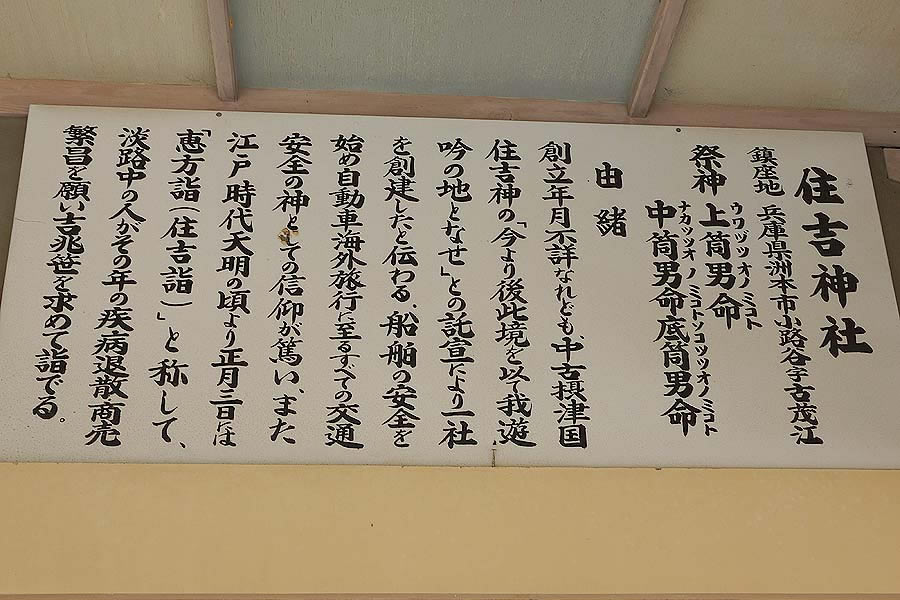 住吉神社
鎮座地 兵庫県洲本市小路谷字古茂江
祭神 上筒男命
ウワヅツオノミコト
中筒男命底筒男命
ナカツツオノミコトソコツツオノミコト
由緒
創立年月不詳なれども、中古摂津国
住吉神の「今より後此境を以て我遊
吟の地となせ」との託宣により一社
を創建したと伝わる、船舶の安全を
始め自動車海外旅行に至るすべての交通
安全の神としての信仰が篤い、また
江戸時代天明の頃より正月三日には
「恵方詣(住吉詣)」と称して、
淡路中の人がその年の疾病退散商売
繁昌を願い吉兆笹を求めて詣でる。